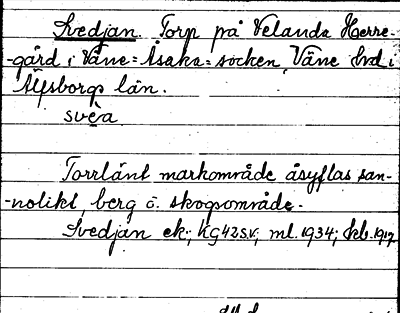 Svedjan. Torp på Velanda Herre-
-gård i Väne=Åsaka=socken, Väne hd i
Älfsborgs län.
svèa
Torrlänt markområde åsyftas san-
-nolikt, berg o. skogsområde.
Svedjan ek; kg 42 s.v; ml. 1934; kb. 1917